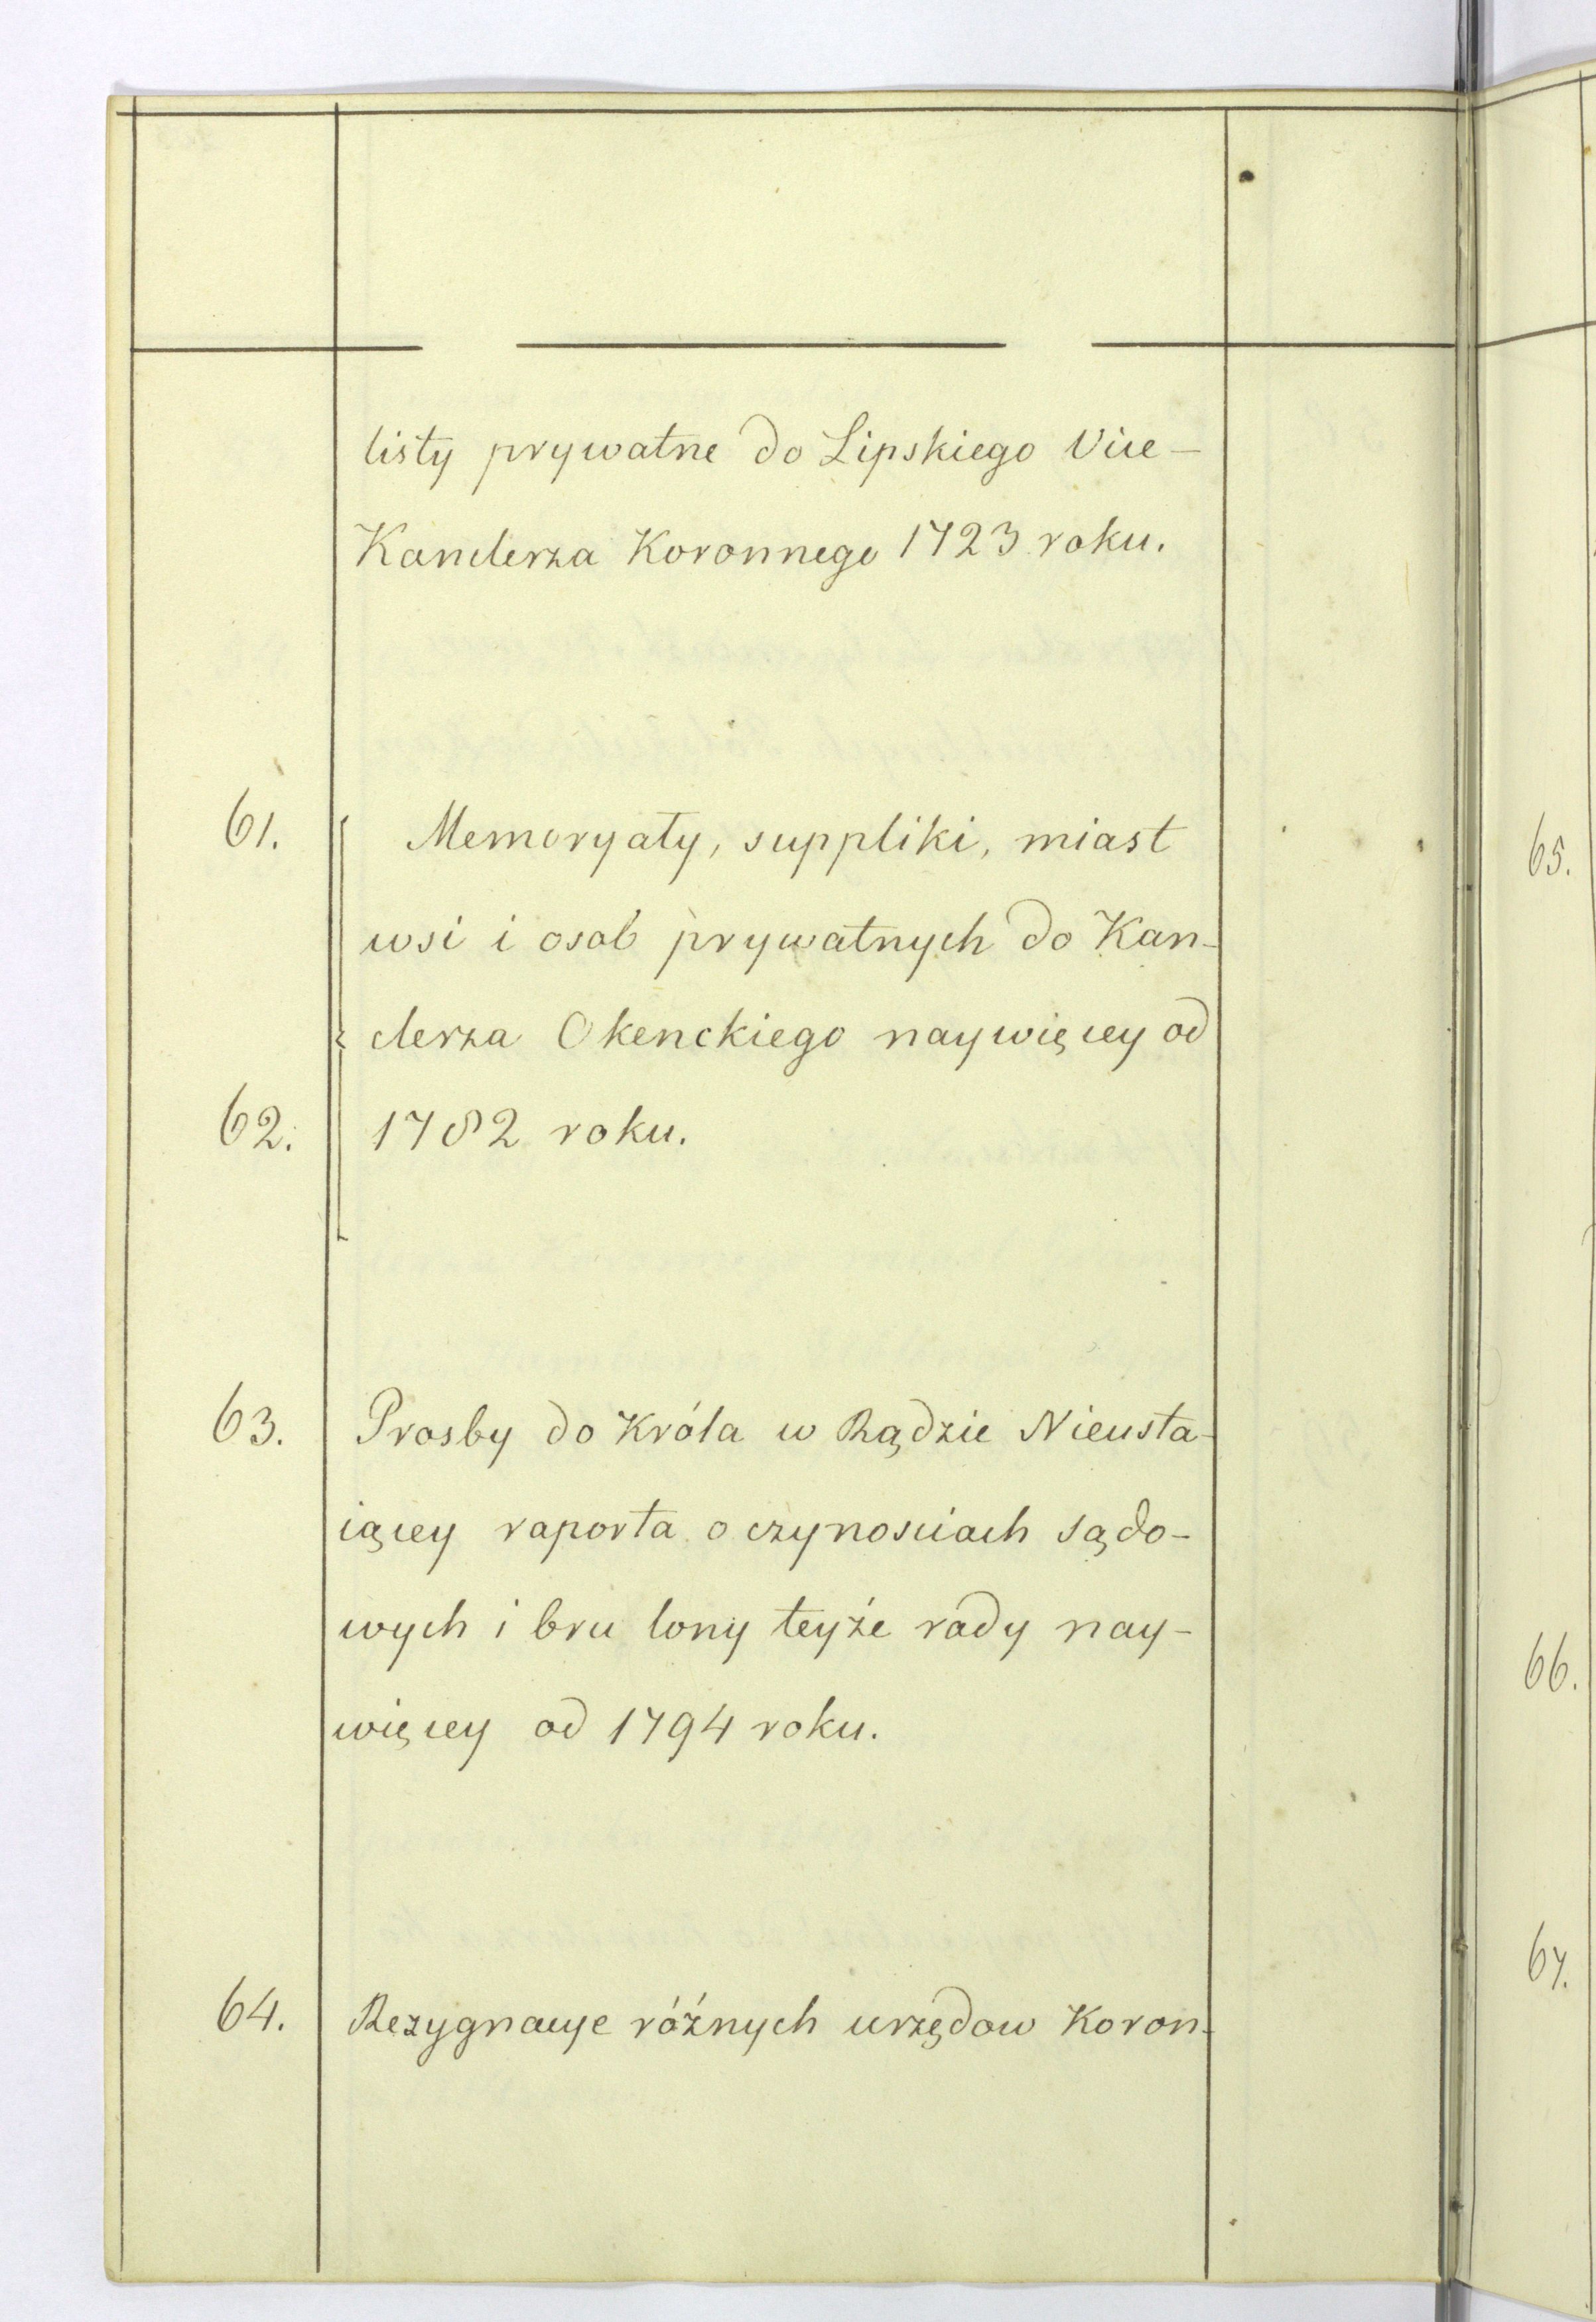 listy prywatne do Lipskiego Vice-
Kanclerza Koronnego 1723 roku.
61. Memoryały, suppliki, miast
wsi i osob prywatnych do Kan-
clerza Okenckiego naywięcey od
62. 1782 roku.
63. Prosby do Króla w Rądzie Nieusta-
iącey raporta o czynosciach sądo-
wych i bru lony teyże rady nay-
więcey od 1794 roku.
64. Rezygnacye różnych urzędow Koron-
65.
66.
67.